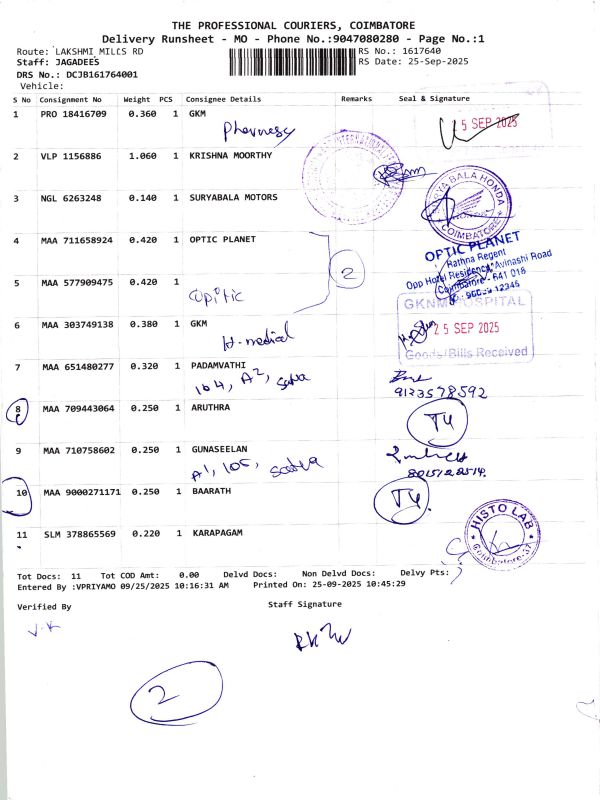 THE PROFESSIONAL COURIERS, COIMBATORE
Delivery Runsheet - MO - Phone No.:9047080280 - Page No.:1
Route: LAKSHMI MILLS RD RS No.: 1617640
Staff: JAGADEES RS Date: 25-Sep-2025
DRS No.: DCJB161764001
Vehicle:
S No Consignment No Weight PCS Consignee Details Remarks Seal & Signature
1 PRO 18416709 0.360 1 GKM
5 SEP 2025
2 VLP 1156886 1.060 1 KRISHNA MOORTHY
3 NGL 6263248 0.140 1 SURYABALA MOTORS
SURYA BALA HONDA
COIMBATORE
4 MAA 711658924 0.420 1 OPTIC PLANET
OPTIC PLANET
Rathna Regent
Opp Hotel Residency, Avinashi Road
Coimbatore - 641 018
2
5 MAA 577909475 0.420 1
optic
GKNM HOSPITAL
6 MAA 303749138 0.380 1 GKM
H-medical
25 SEP 2025
Goods/Bills Received
7 MAA 651480277 0.320 1 PADAMVATHI
104, A2,
9123578592
8 MAA 709443064 0.250 1 ARUTHRA
T4
9 MAA 710758602 0.250 1 GUNASEELAN
A1, 105,
10 MAA 9000271171 0.250 1 BAARATH
T4.
11 SLM 378865569 0.220 1 KARAPAGAM
HISTO LAB
Coimbatore-37
Tot Docs: 11 Tot COD Amt: 0.00 Delvd Docs: Non Delvd Docs: Delvy Pts:
Entered By :VPRIYAMO 09/25/2025 10:16:31 AM Printed On: 25-09-2025 10:45:29
Verified By Staff Signature
V.K
2